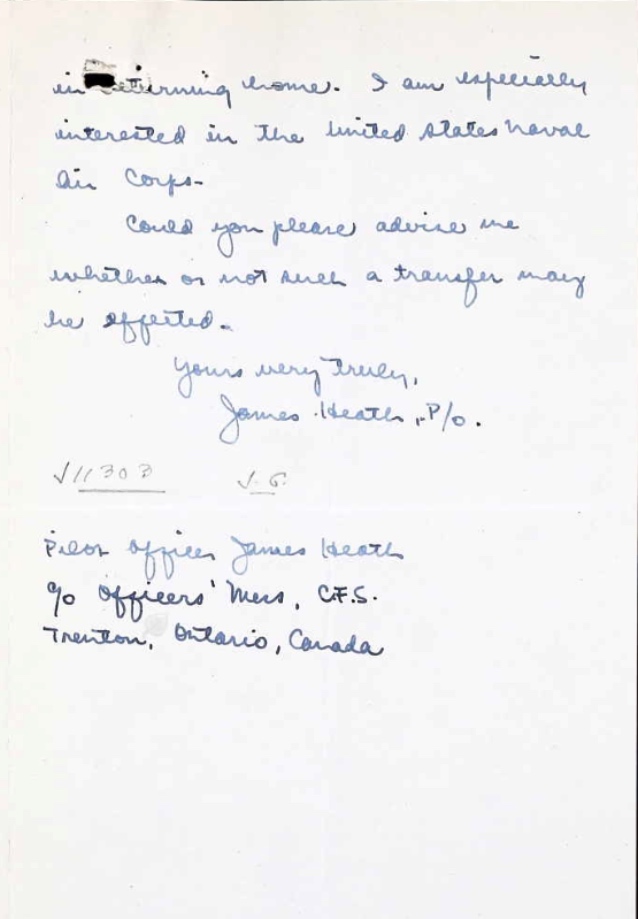 in returning home. I am especially
interested in the United States Naval
Air Corps-
Could you please advise me
whether or not such a transfer may
be effected.
Yours very truly,
James Heath, P/o.
J11303 J.G.
Pilot Officer James Heath
c/o Officers' Mess, C.F.S.
Trenton, Ontario, Canada